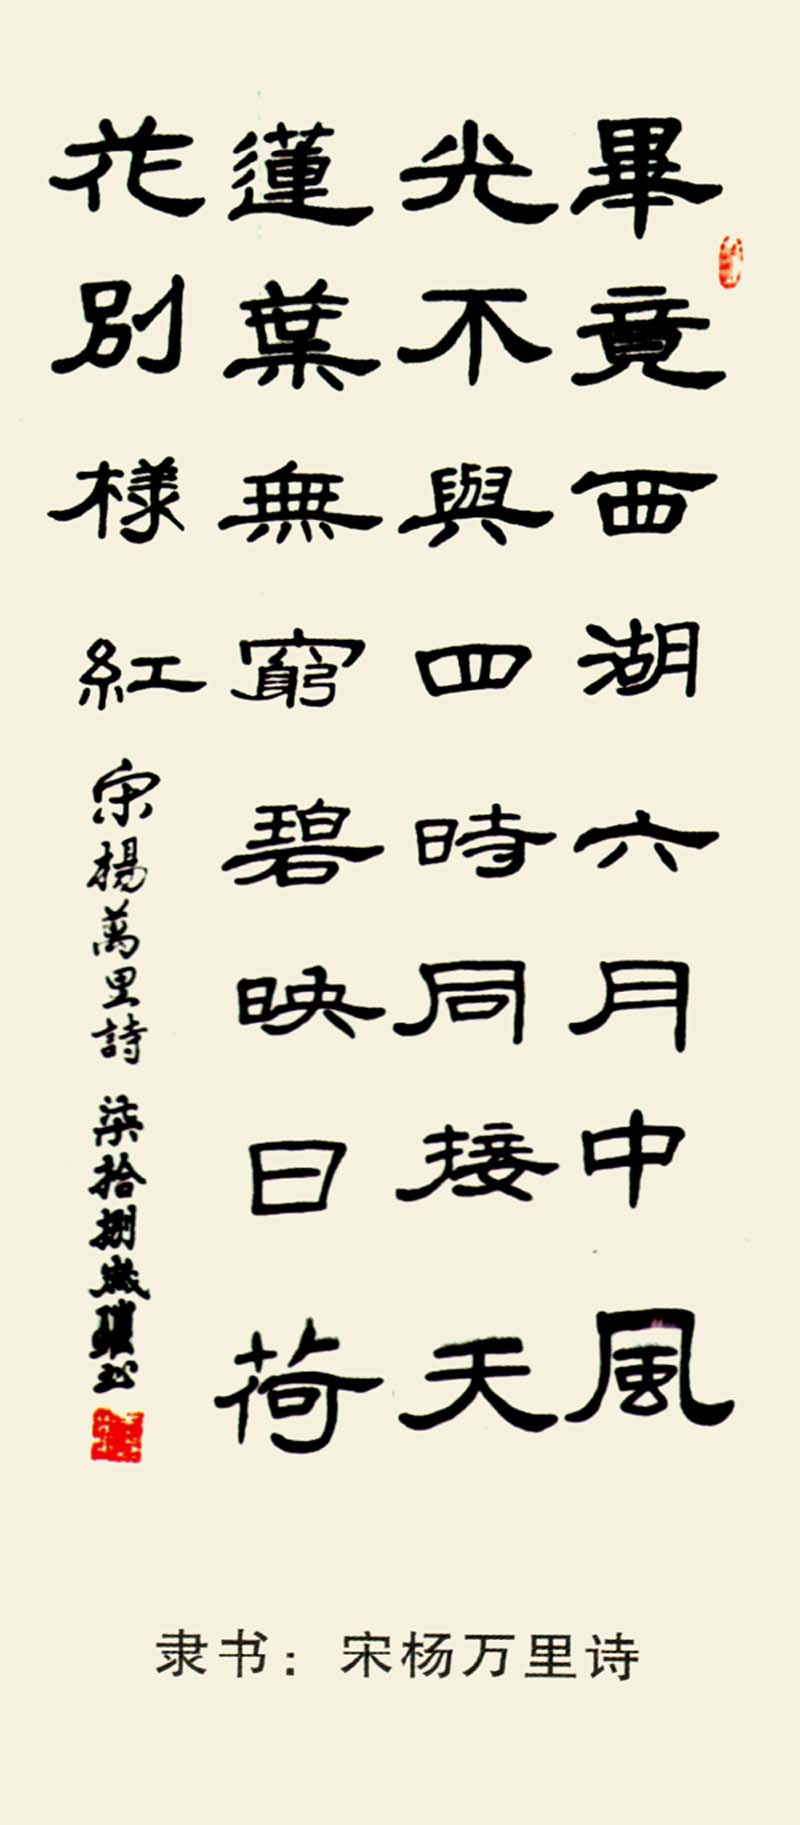 畢竟西湖六月中風
光不與四時同接天
蓮葉無窮碧映日荷
花別樣紅
宋楊萬里詩 柒拾捌歲
隶书：宋杨万里诗